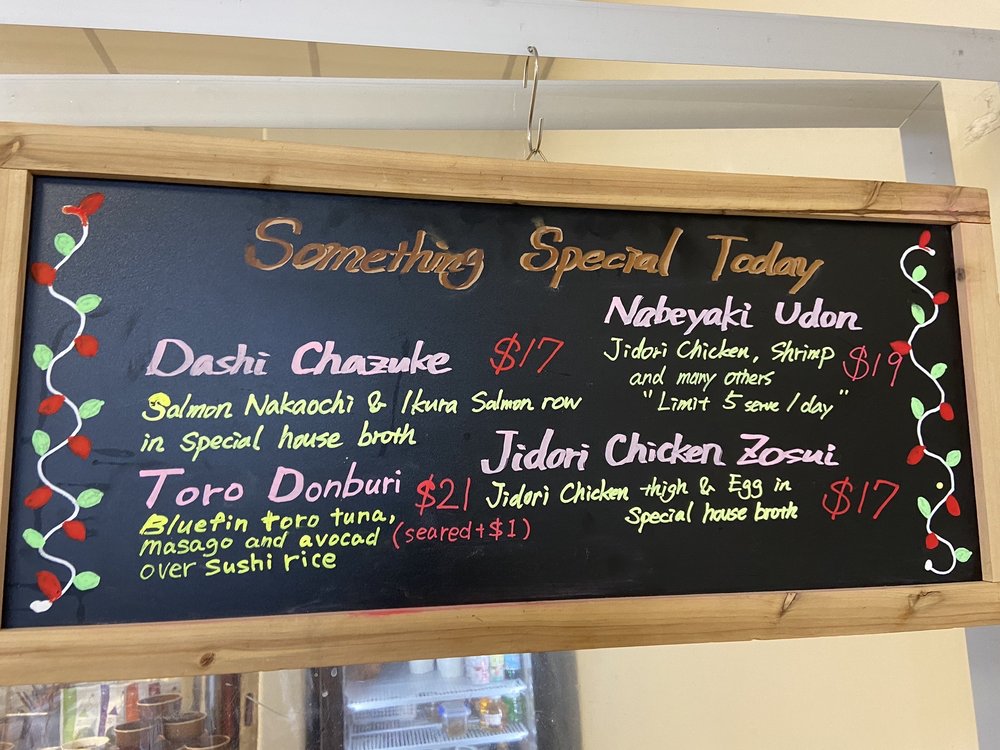 Something Special Today
Dashi Chazuke $17
Salmon Nakaochi & Ikura Salmon row
in special house broth
Toro Donburi $21
Bluefin toro tuna,
masago and avocad (seared+$1)
over sushi rice
Nabeyaki Udon
Jidori Chicken, Shrimp $19
and many others
"Limit 5 serve/day"
Jidori Chicken Zosui
Jidori Chicken thigh & Egg in $17
Special house broth